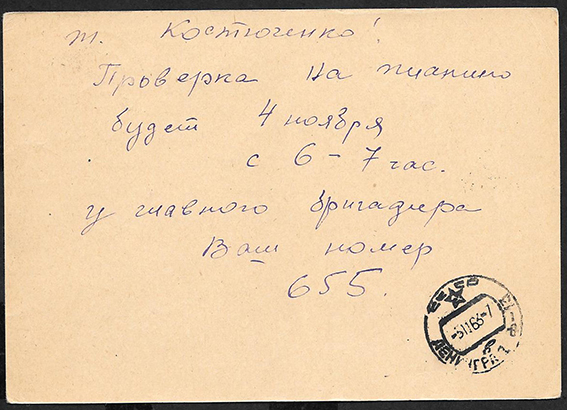 т. Костюченко!
Проверка на пианино
будет 4 ноября
с 6-7 час.
у главного бригадира
Ваш номер
655.
СССР
ЛЕНИНГРАД